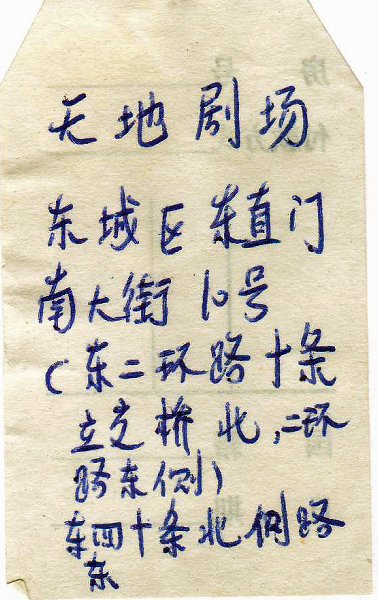 天地剧场
东城区东直门
南大街10号
(东二环路十条
立交桥北,二环
路东侧)
东四十条北侧路
东